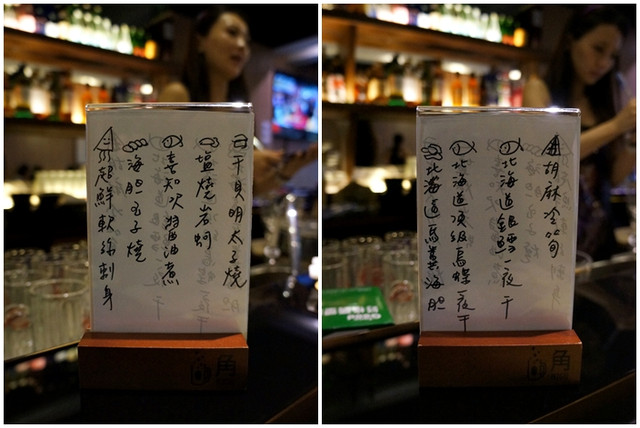 干貝明太子燒
塩燒岩蚵
喜知次醬油煮
海胆玉子燒
現起鮮軟絲刺身
角
胡麻冷筍
北海道銀鱈一夜干
北海道頂級烏條一夜干
北海道馬糞海胆
角